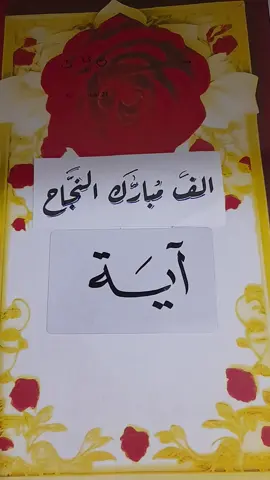 الفَّ مُبارَّك النجَّاح
آيَة